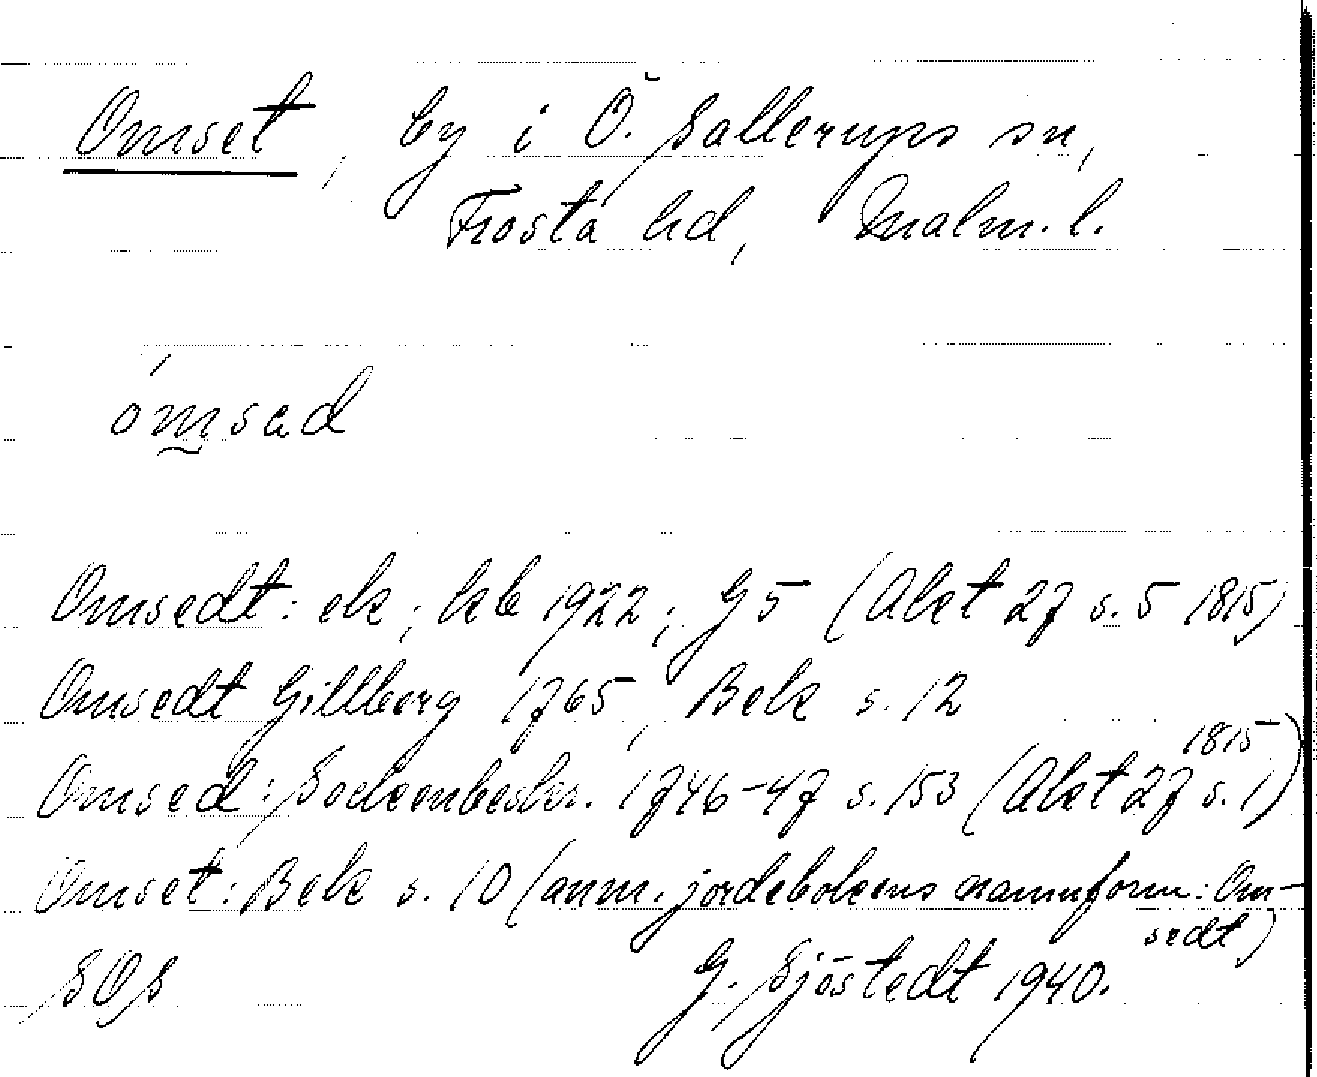 Omset, by i Ö. Sallerups sn,
Frosta hd, Malm. l.
ómsad
Omsedt: ek; kb 1922; G 5 (Akt 27 s. 5 1815)
Omsedt Gillberg 1765, Bek s. 12
Omsed: Sockenbeskr. 1746-47 s. 153 (Akt 27 s. 1 1815)
Omset: Bek s. 10 (anm. jordebokens namnform: Om-
sedt)
SOS G. Sjöstedt 1940.